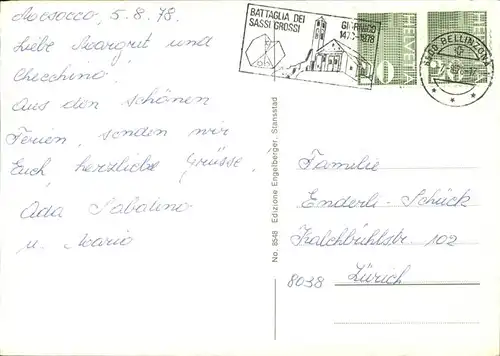 Mesocco, 5.8.78.
Liebe Margrit und
Checchino!
Aus den schönen
Ferien, senden wir
Euch herzliche Grüsse.
Ada Sabatino
u. Mario
BATTAGLIA DEI
SASSI GROSSI
GIORNICO
1478-1978
HELVETIA
HELVETIA
6500 BELLINZONA
No. 8548 Edizione Engelberger, Stansstad
Familie
Enderli-Schück
Kalchbühlstr. 102
8038 Zürich